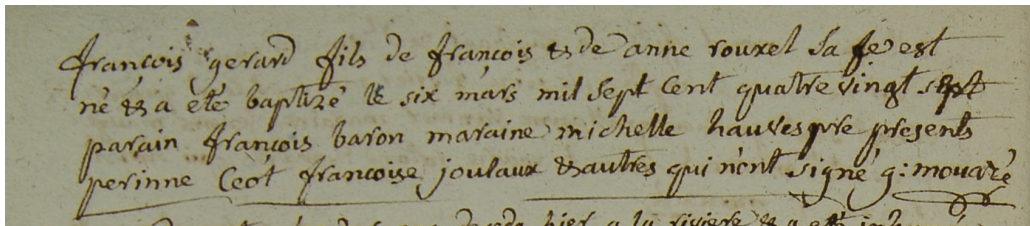 françois gerard fils de françois & de anne rouxel sa fe est
né & a eté baptizé le six mars mil sept cent quatre vingt sept
parain françois baron maraine michelle hauvespre presents
perinne Ceot francoise joulaux & autres qui n'ont signé g: mouazé
hier a la riviere & a eté